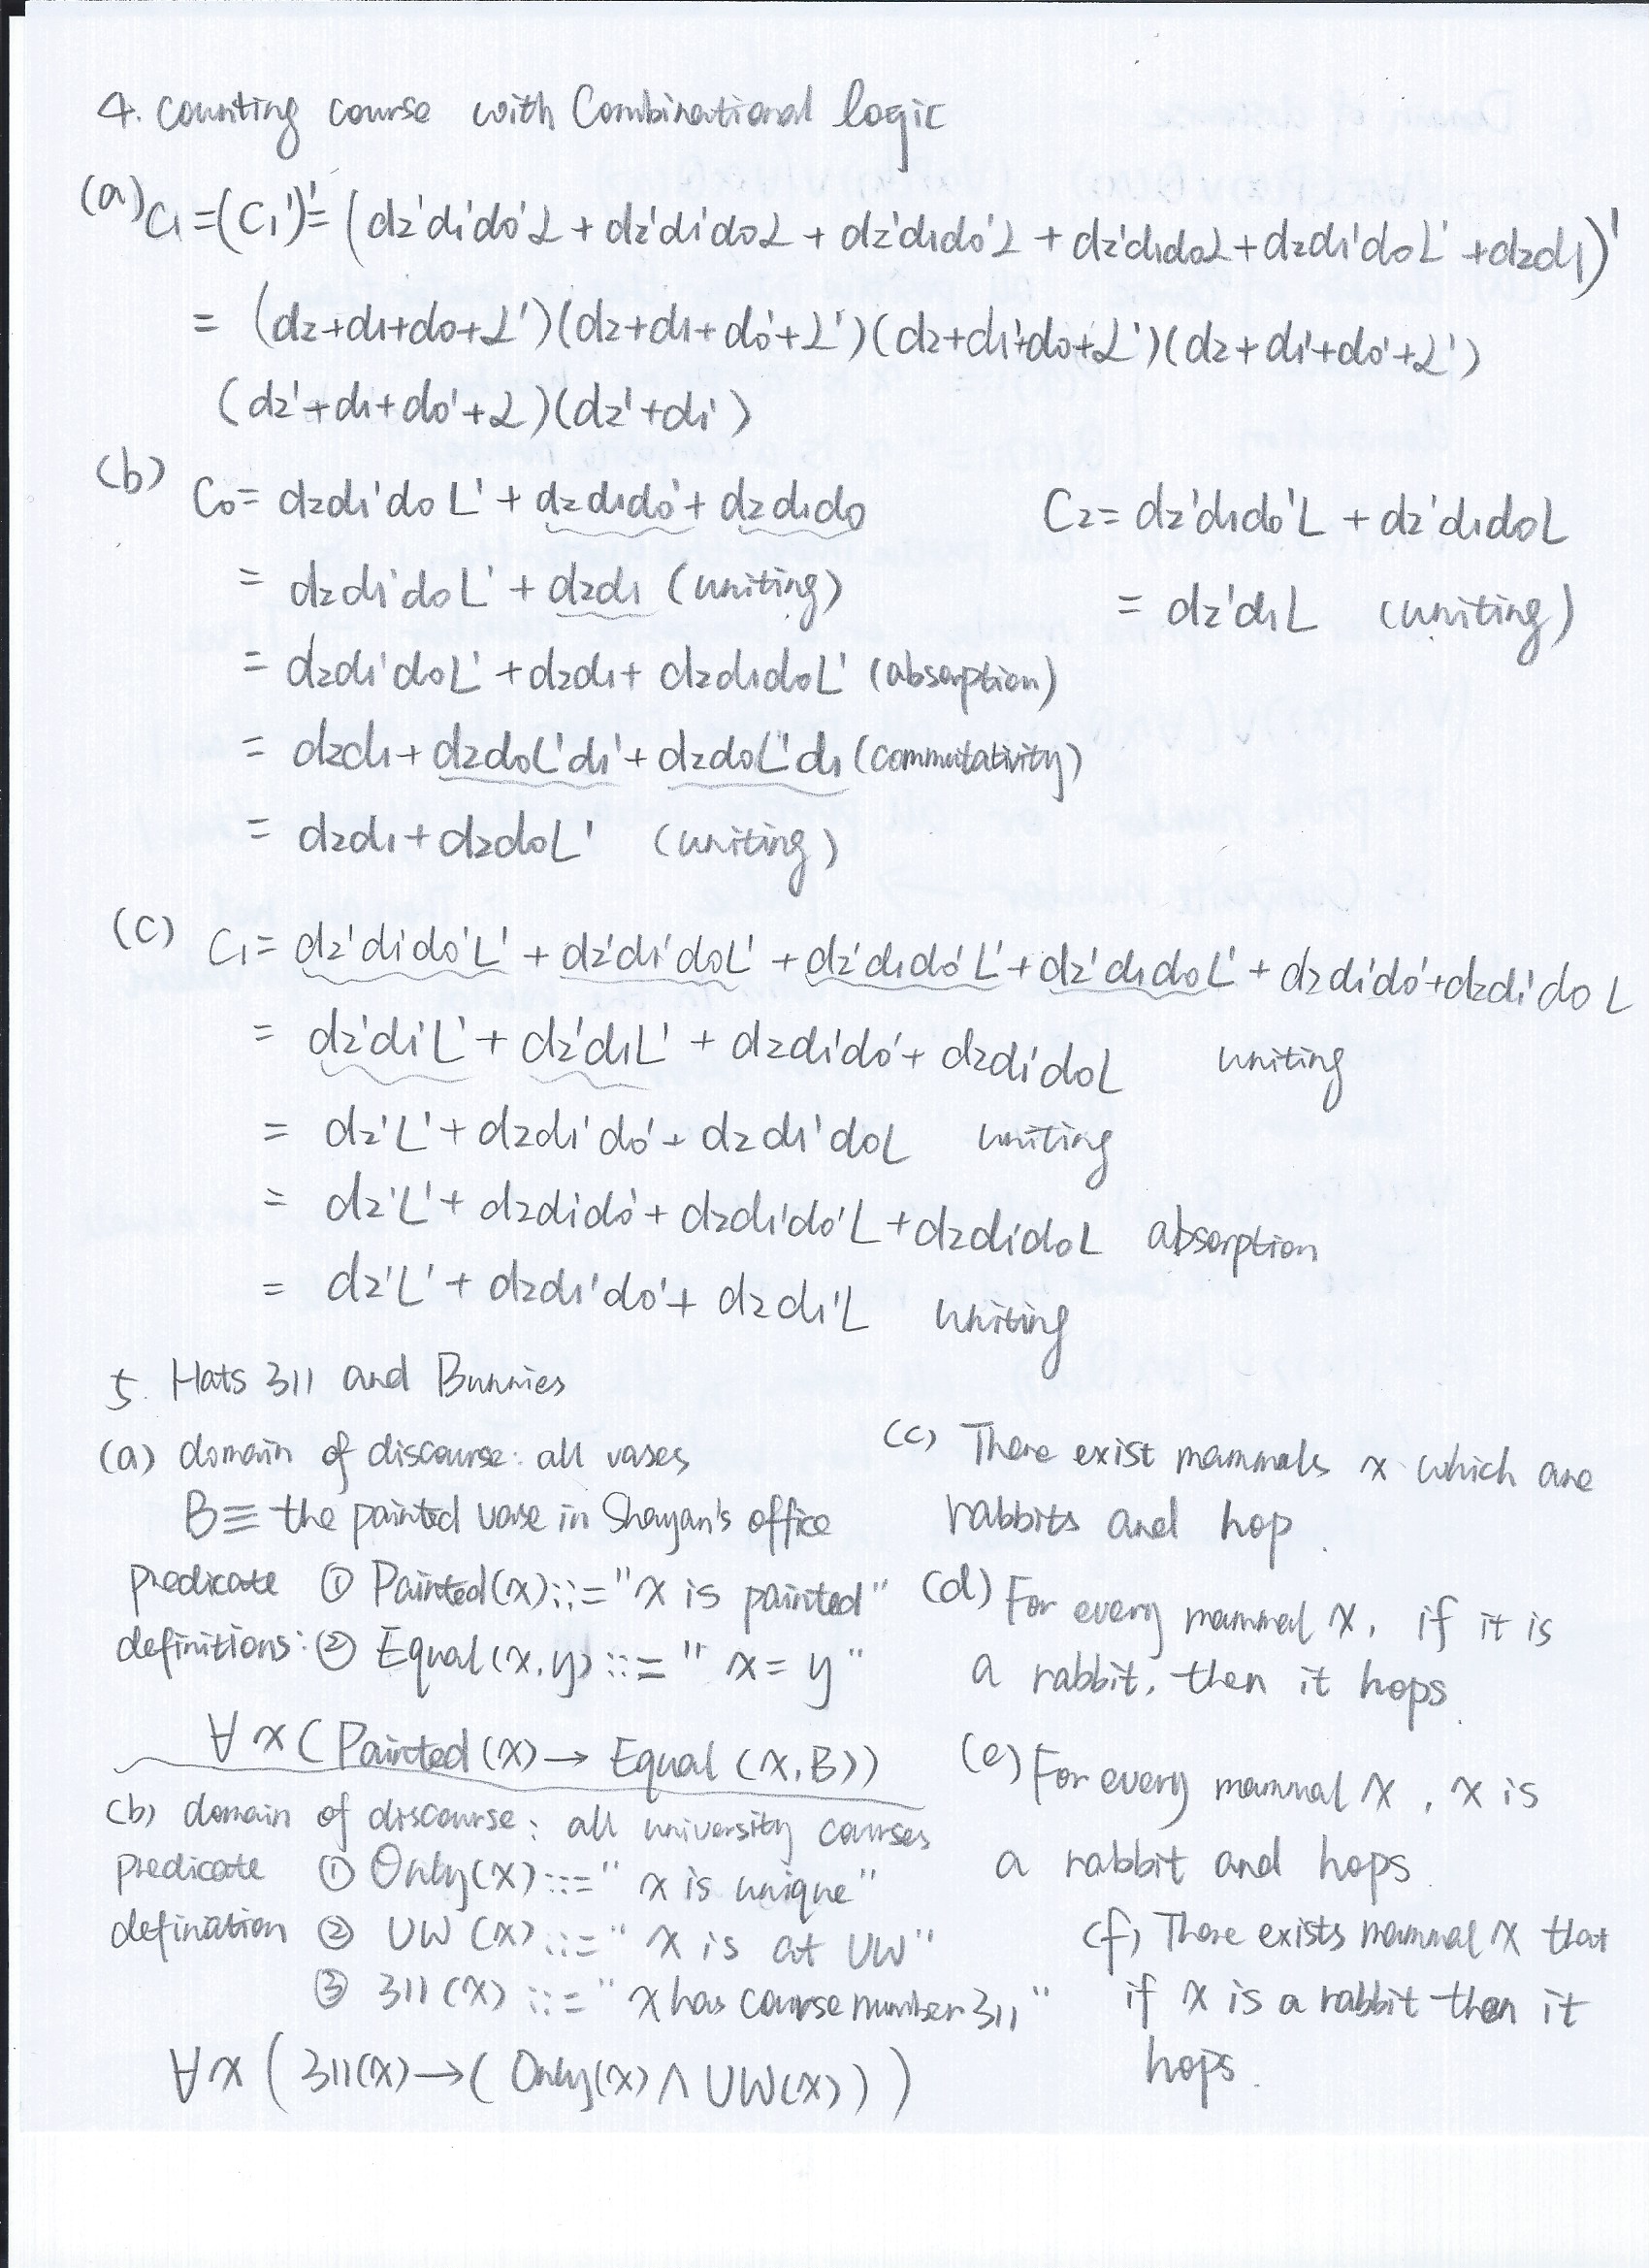 4. Counting course with Combinational logic
(a) C1 = (C1')' = (d2'd1'd0'L + d2'd1'd0L + d2'd1d0'L + d2'd1d0L + d2d1'd0L' + d2d1)'
= (d2+d1+d0+L')(d2+d1+d0'+L')(d2+d1'+d0+L')(d2+d1'+d0'+L')
(d2'+d1+d0'+L)(d2'+d1')
(b) C0 = d2d1'd0L' + d2d1d0' + d2d1d0
= d2d1'd0L' + d2d1 (uniting)
= d2d1'd0L' + d2d1 + d2d1d0L' (absorption)
= d2d1 + d2d0L'd1' + d2d0L'd1 (commutativity)
= d2d1 + d2d0L' (uniting)
C2 = d2'd1d0'L + d2'd1d0L
= d2'd1L (uniting)
(c) C1 = d2'd1'd0'L' + d2'd1'd0L' + d2'd1d0'L' + d2'd1d0L' + d2d1'd0' + d2d1'd0L
= d2'd1'L' + d2'd1L' + d2d1'd0' + d2d1'd0L uniting
= d2'L' + d2d1'd0' + d2d1'd0L uniting
= d2'L' + d2d1'd0' + d2d1'd0'L + d2d1'd0L absorption
= d2'L' + d2d1'd0' + d2d1'L uniting
5. Hats 311 and Bunnies
(a) domain of discourse: all vases
B ≡ the painted vase in Shayan's office
predicate ① Painted(x)::="x is painted"
definitions: ② Equal(x,y)::="x=y"
∀x(Painted(x) → Equal(x,B))
(b) domain of discourse: all university courses
predicate ① Only(x):::="x is unique"
defination ② UW(x)::="x is at UW"
③ 311(x)::="x has course number 311"
∀x(311(x)→(Only(x) ∧ UW(x)))
(c) There exist mammals x which are
rabbits and hop.
(d) For every mammal x, if it is
a rabbit, then it hops.
(e) For every mammal x, x is
a rabbit and hops.
(f) There exists mammal x that
if x is a rabbit then it
hops.